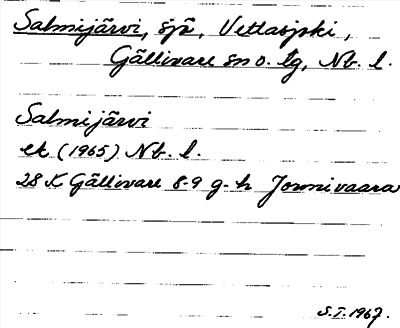 Salmijärvi, sjö, Vettasjoki,
Gällivare sn o. tg, Nb. l.
Salmijärvi
ek (1965) Nb. l.
28 K Gällivare 8-9 g-h Jormivaara
S.I. 1967.